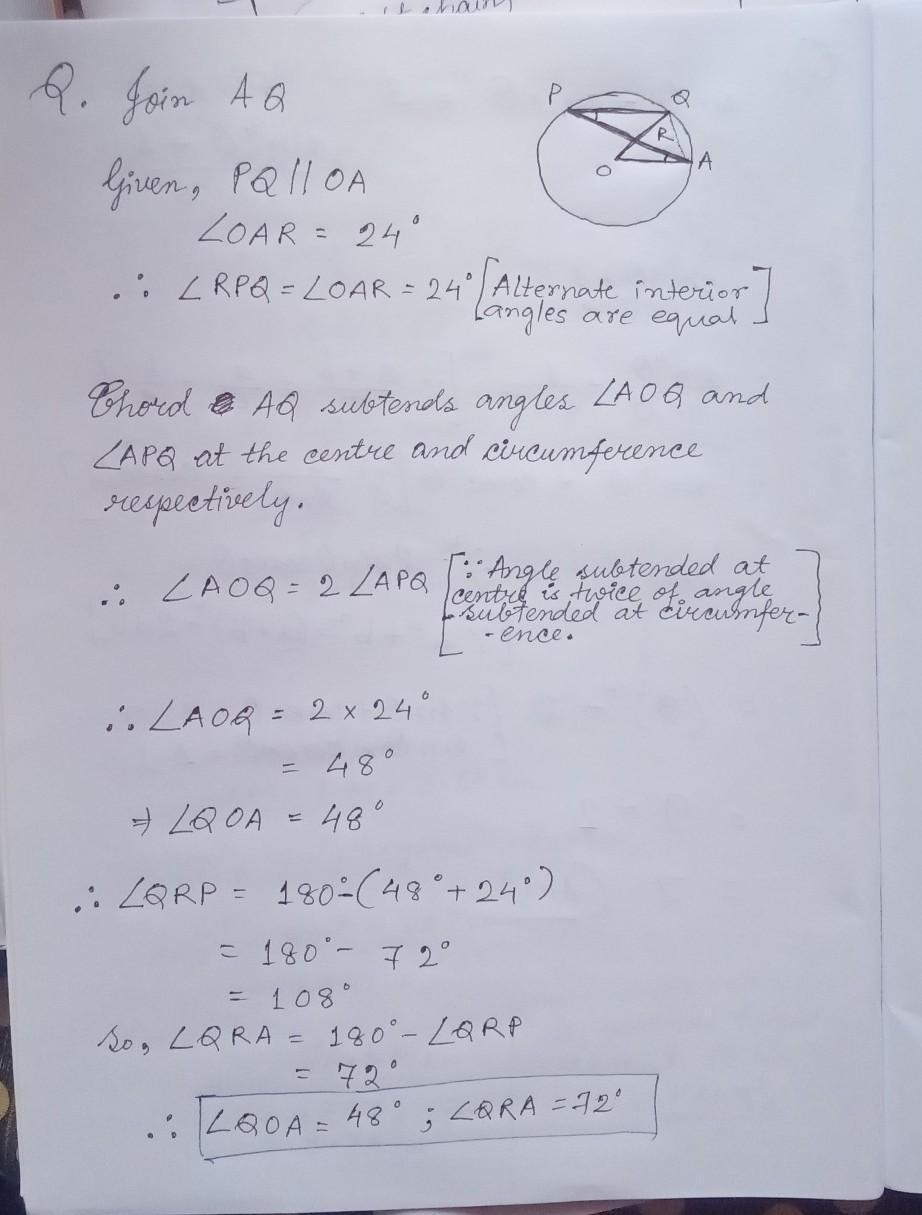 Q. Join AQ
P
Q
R
O
A
Given, PQ || OA
∠OAR = 24°
∴ ∠RPQ = ∠OAR = 24° [Alternate interior
angles are equal]
Chord AQ subtends angles ∠AOQ and
∠APQ at the centre and circumference
respectively.
∴ ∠AOQ = 2 ∠APQ [∵ Angle subtended at
centre is twice of angle
subtended at circumfer-
-ence.]
∴ ∠AOQ = 2 × 24°
= 48°
⇒ ∠QOA = 48°
∴ ∠QRP = 180° - (48° + 24°)
= 180° - 72°
= 108°
So, ∠QRA = 180° - ∠QRP
= 72°
∴ ∠QOA = 48° ; ∠QRA = 72°